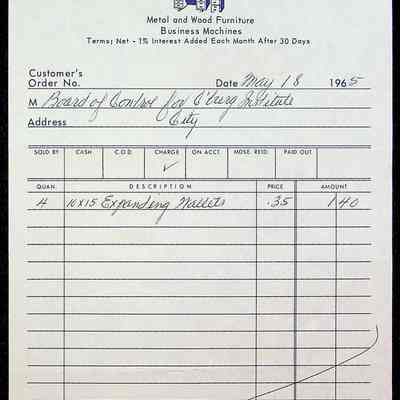 Metal and Wood Furniture
Business Machines
Terms; Net - 1% Interest Added Each Month After 30 Days
Customer's
Order No. Date May 18 1965
M Board of Control for C'burg Institute
Address City
SOLD BY CASH C.O.D. CHARGE ON ACCT. MDSE. RETD. PAID OUT
✓
QUAN. DESCRIPTION PRICE AMOUNT
4 10x15 Expanding Wallets .35 1 40